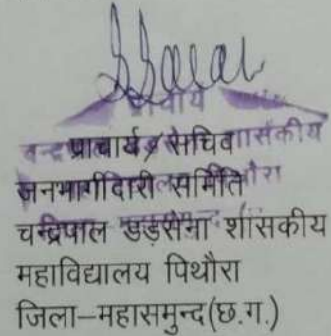 प्राचार्य
प्राचार्य / सचिव
जनभागीदारी समिति
चन्द्रपाल डड़सेना शासकीय
महाविद्यालय पिथौरा
जिला–महासमुन्द(छ.ग.)